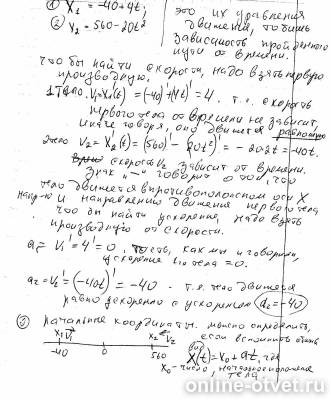 ① X₁ = -40+4t;
② X₂ = 560-20t²
это их уравнения
движения, то бишь
зависимость пройденного
пути от времени.
Что бы найти скорости, надо взять первую
производную.
1 тело. V₁=X₁'(t) = (-40)'+(4t)' = 4. т.е. скорость
первого тела от времени не зависит,
иначе говоря, оно движется равномерно
2 тело V₂=X₂'(t) = (560)'-(20t²)' = -20·2t = -40t.
скорость V₂ зависит от времени.
Знак "-" говорит о том, что
тело движется в противоположном оси X
напр-ю и направлению движения первого тела
что бы найти ускорения, надо взять
производную от скорости.
a₁ = V₁' = 4' = 0, то есть, как мы и говорили,
ускорение 1го тела = 0.
a₂ = V₂' = (-40t)' = -40. т.е. тело движется
равно ускоренно с ускорением a₂ = -40
③ Начальные координаты можно определить,
если вспомнить общий
вид
X₁ V₁ X₂ V₂
-40 0 560
X(t) = X₀ + at, где
X₀ - число, начальное положение
тела
online-otvet.ru